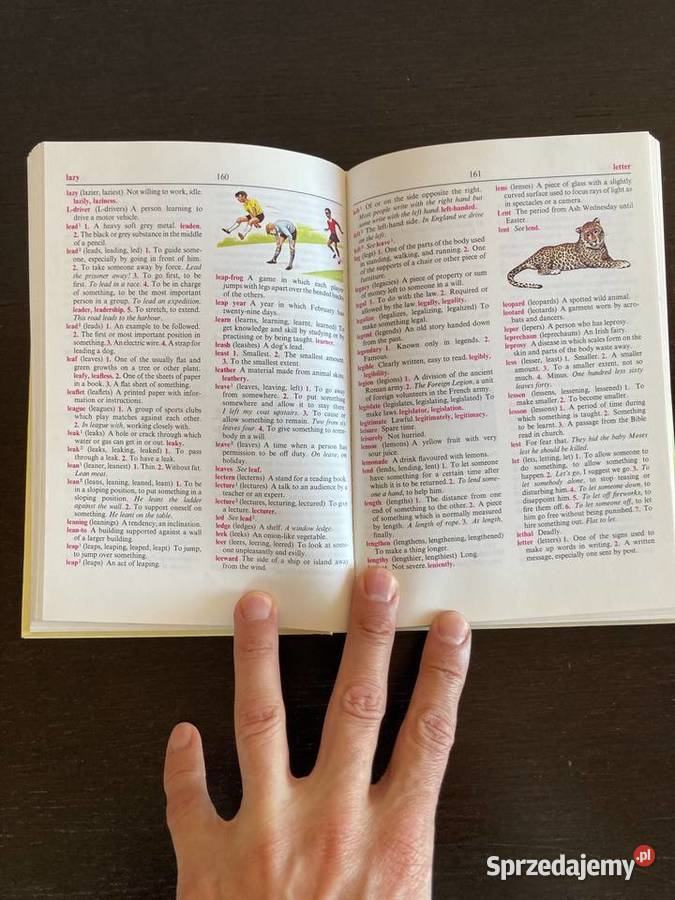 lazy 160
lazy (lazier, laziest) Not willing to work, idle.
lazily, laziness.
L-driver (L-drivers) A person learning to
drive a motor vehicle.
lead¹ 1. A heavy soft grey metal. leaden.
2. The black or grey substance in the middle
of a pencil.
lead² (leads, leading, led) 1. To guide some-
one, especially by going in front of him.
2. To take someone away by force. Lead
the prisoner away! 3. To go first, to be
first. To lead in a race. 4. To be in charge
of something, to be the most important
person in a group. To lead an expedition.
leader, leadership. 5. To stretch, to extend.
This road leads to the harbour.
lead³ (leads) 1. An example to be followed.
2. The first or most important position in
something. 3. An electric wire. 4. A strap for
leading a dog.
leaf (leaves) 1. One of the usually flat and
green growths on a tree or other plant.
leafy, leafless. 2. One of the sheets of paper
in a book. 3. A flat sheet of something.
leaflet (leaflets) A printed paper with infor-
mation or instructions.
league (leagues) 1. A group of sports clubs
which play matches against each other.
2. In league with, working closely with.
leak¹ (leaks) A hole or crack through which
water or gas can get in or out. leaky.
leak² (leaks, leaking, leaked) 1. To pass
through a leak. 2. To have a leak.
lean¹ (leaner, leanest) 1. Thin. 2. Without fat.
Lean meat.
lean² (leans, leaning, leaned, leant) 1. To be
in a sloping position, to put something in a
sloping position. He leant the ladder
against the wall. 2. To support oneself on
something. He leant on the table.
leaning (leanings) A tendency, an inclination.
lean-to A building supported against a wall
of a larger building.
leap¹ (leaps, leaping, leaped, leapt) To jump,
to jump over something.
leap² (leaps) An act of leaping.
leap-frog A game in which each player
jumps with legs apart over the bended backs
of the others.
leap year A year in which February has
twenty-nine days.
learn (learns, learning, learnt, learned) To
get knowledge and skill by studying or by
practising or by being taught. learner.
leash (leashes) A dog's lead.
least 1. Smallest. 2. The smallest amount.
3. To the smallest extent.
leather A material made from animal skins.
leathery.
leave¹ (leaves, leaving, left) 1. To go away
from somewhere. 2. To put something
somewhere and allow it to stay there.
I left my coat upstairs. 3. To cause or
allow something to remain. Two from six
leaves four. 4. To give something to some-
body in a will.
leave² (leaves) A time when a person has
permission to be off duty. On leave, on
holiday.
leaves See leaf.
lectern (lecterns) A stand for a reading book.
lecture¹ (lectures) A talk to an audience by a
teacher or an expert.
lecture² (lectures, lecturing, lectured) To give
a lecture. lecturer.
led See lead²
ledge (ledges) A shelf. A window ledge.
leek (leeks) An onion-like vegetable.
leer (leers, leering, leered) To look at some-
one unpleasantly and evilly.
leeward The side of a ship or island away
from the wind.
161 letter
left¹ Of or on the side opposite the right.
Most people write with the right hand but
some write with the left hand. left-handed.
left² The left-hand side. In England we drive
on the left.
left³ See leave¹.
leg (legs) 1. One of the parts of the body used
in standing, walking, and running. 2. One
of the supports of a chair or other piece of
furniture.
legacy (legacies) A piece of property or sum
of money left to someone in a will.
legal 1. To do with the law. 2. Required or
allowed by the law. legally, legality.
legalize (legalizes, legalizing, legalized) To
make something legal.
legend (legends) An old story handed down
from the past.
legendary 1. Known only in legends. 2.
Famous.
legible Clearly written, easy to read. legibly,
legibility.
legion (legions) 1. A division of the ancient
Roman army. 2. The Foreign Legion, a unit
of foreign volunteers in the French army.
legislate (legislates, legislating, legislated) To
make laws. legislator, legislation.
legitimate Lawful. legitimately, legitimacy.
leisure Spare time.
leisurely Not hurried.
lemon (lemons) A yellow fruit with very
sour juice.
lemonade A drink flavoured with lemons.
lend (lends, lending, lent) 1. To let someone
have something for a certain time after
which it is to be returned. 2. To lend some-
one a hand, to help him.
length (lengths) 1. The distance from one
end of something to the other. 2. A piece
of something which is normally measured
by length. A length of rope. 3. At length,
finally.
lengthen (lengthens, lengthening, lengthened)
To make a thing longer.
lengthy (lengthier, lengthiest) Long.
Not severe. leniently.
lens (lenses) A piece of glass with a slightly
curved surface used to focus rays of light as
in spectacles or a camera.
Lent The period from Ash Wednesday until
Easter.
lent See lend.
leopard (leopards) A spotted wild animal.
leotard (leotards) A garment worn by acro-
bats and dancers.
leper (lepers) A person who has leprosy.
leprechaun (leprechauns) An Irish fairy.
leprosy A disease in which scales form on the
skin and parts of the body waste away.
less (lesser, least) 1. Smaller. 2. A smaller
amount. 3. To a smaller extent, not so
much. 4. Minus. One hundred less sixty
leaves forty.
lessen (lessens, lessening, lessened) 1. To
make smaller. 2. To become smaller.
lesson (lessons) 1. A period of time during
which something is taught. 2. Something
to be learnt. 3. A passage from the Bible
read in church.
lest For fear that. They hid the baby Moses
lest he should be killed.
let (lets, letting, let) 1. To allow someone to
do something, to allow something to
happen. 2. Let's go, I suggest we go. 3. To
let somebody alone, to stop teasing or
disturbing him. 4. To let someone down, to
disappoint him. 5. To let off fireworks, to
fire them off. 6. To let someone off, to let
him go free without being punished. 7. To
hire something out. Flat to let.
lethal Deadly.
letter (letters) 1. One of the signs used to
make up words in writing. 2. A written
message, especially one sent by post.
Sprzedajemy.pl